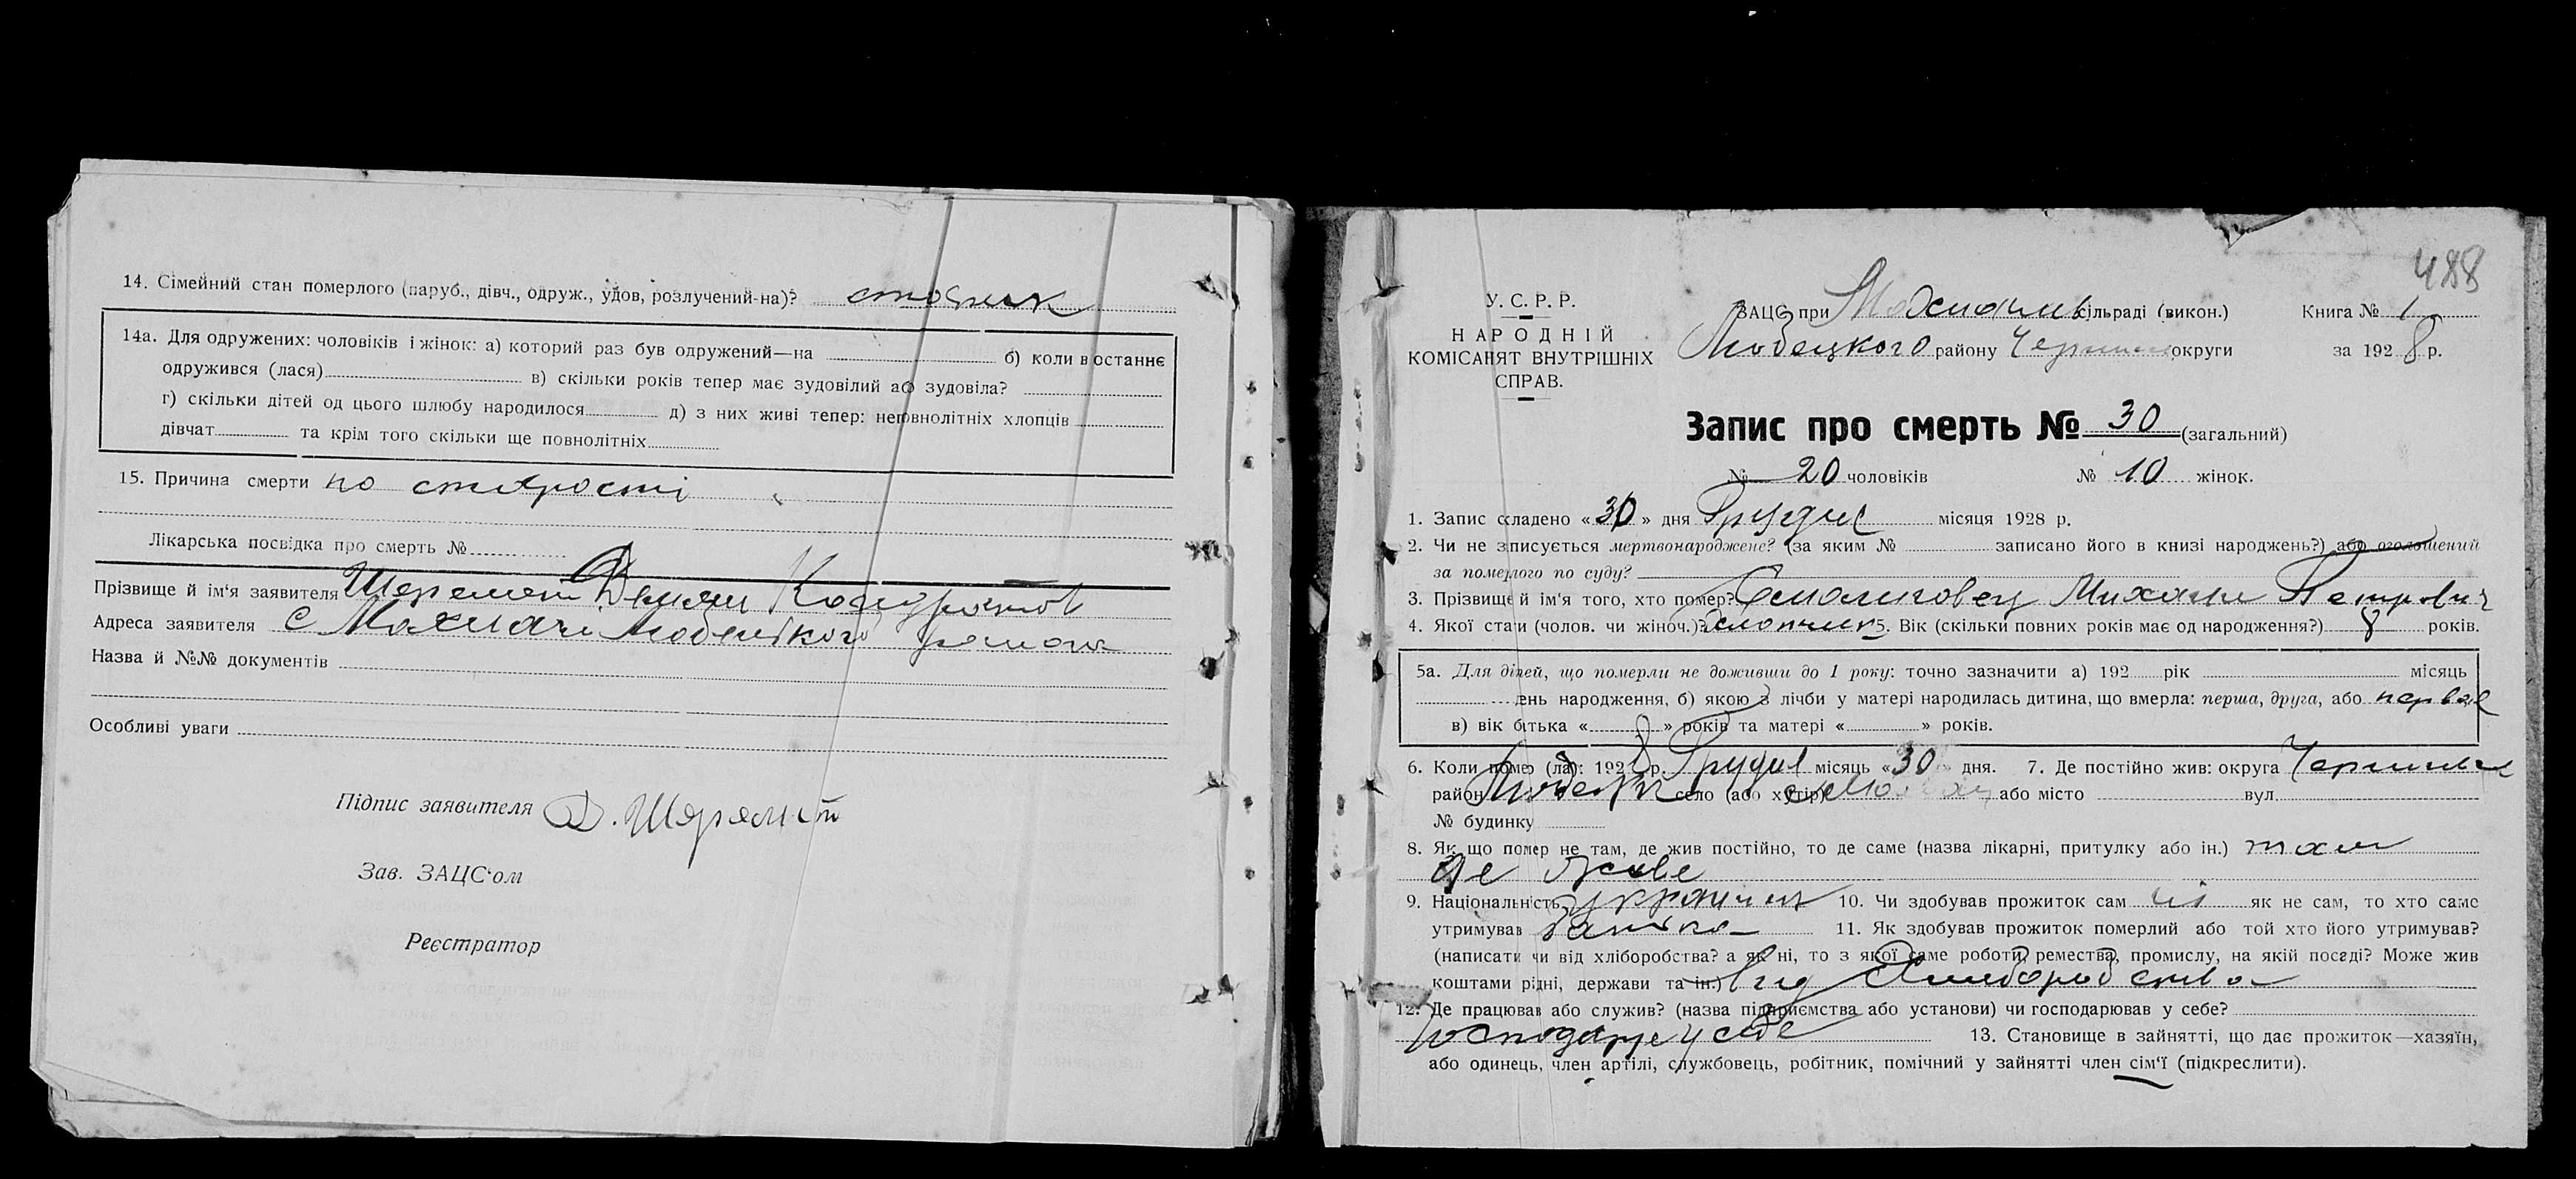 14. Сімейний стан померлого (паруб., дівч., одруж., удов, розлучений-на)?
14а. Для одружених: чоловіків і жінок: а) которий раз був одружений—на б) коли востаннє
одружився (лася) в) скільки років тепер має зудовілий або зудовіла?
г) скільки дітей од цього шлюбу народилося д) з них живі тепер: неповнолітніх хлопців
дівчат та крім того скільки ще повнолітніх
15. Причина смерти по старості
Лікарська посвідка про смерть №
Прізвище й ім'я заявителя Шеремет Демян Кондратов
Адреса заявителя с Махначи Любецкого района
Назва й №№ документів
Особливі уваги
Підпис заявителя Д. Шеремет
Зав. ЗАЦС'ом
Реєстратор
488
У. С. Р. Р.
НАРОДНІЙ
КОМІСАРІЯТ ВНУТРІШНІХ
СПРАВ.
ЗАЦС при сільраді (викон.) Книга № 1
Любецкого району округи за 1928 р.
Запис про смерть № 30 (загальний)
№ 20 чоловіків № 10 жінок.
1. Запис складено «30» дня Грудня місяця 1928 р.
2. Чи не записується мертвонароджене? (за яким № записано його в книзі народжень?) або оголошений
за померлого по суду?
3. Прізвище й ім'я того, хто помер? Михаил Петрович
4. Якої стати (чолов. чи жіноч.)? хлопчик 5. Вік (скільки повних років має од народження?) 8 років.
5а. Для дітей, що померли не доживши до 1 року: точно зазначити а) 192 рік місяць
день народження, б) якою з лічби у матері народилась дитина, що вмерла: перша, друга, або первая
в) вік батька « » років та матері « » років.
6. Коли помер (ла): 1928 р. Грудня місяць «30» дня. 7. Де постійно жив: округа
район село (або хутір) або місто вул.
№ будинку
8. Як що помер не там, де жив постійно, то де саме (назва лікарні, притулку або ін.) там
де живе
9. Національність українец 10. Чи здобував прожиток сам ні як не сам, то хто саме
утримував батько 11. Як здобував прожиток померлий або той хто його утримував?
(написати чи від хліборобства? а як ні, то з якої саме роботи, ремества, промислу, на якій посаді? Може жив
коштами рідні, держави та ін.) від Хлиборобства
12. Де працював або служив? (назва підприємства або установи) чи господарював у себе?
господарує у себе 13. Становище в зайнятті, що дає прожиток—хазяїн,
або одинець, член артілі, службовець, робітник, помічний у зайнятті член сім'ї (підкреслити).